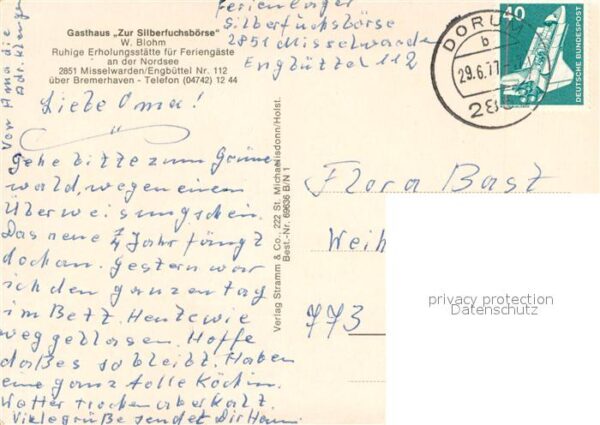 Gasthaus „Zur Silberfuchsbörse"
W. Blohm
Ruhige Erholungsstätte für Feriengäste
an der Nordsee
2851 Misselwarden/Engbüttel Nr. 112
über Bremerhaven - Telefon (04742) 12 44
Ferienlager
Silberfuchsbörse
2851 Misselwarden
Engbüttel 112
DORUM
b
29.6.77
285
40
DEUTSCHE BUNDESPOST
Liebe Oma!
Gehe bitte zum Grüne
wald, wegen einem
Überweisungschein.
Das neue Jahr fängt
doch an. Gestern war
ich den ganzen Tag
im Bett. Heute wie
weggeblasen. Hoffe
daß es so bleibt. Haben
eine ganz tolle Köchin.
Wetter trocken aber kalt.
Viele grüße sendet Dir
Verlag Stramm & Co., 222 St. Michaelisdonn/Holst.
Best.-Nr. 69636 B/N 1
Flora Bast
Weih
773
privacy protection
Datenschutz